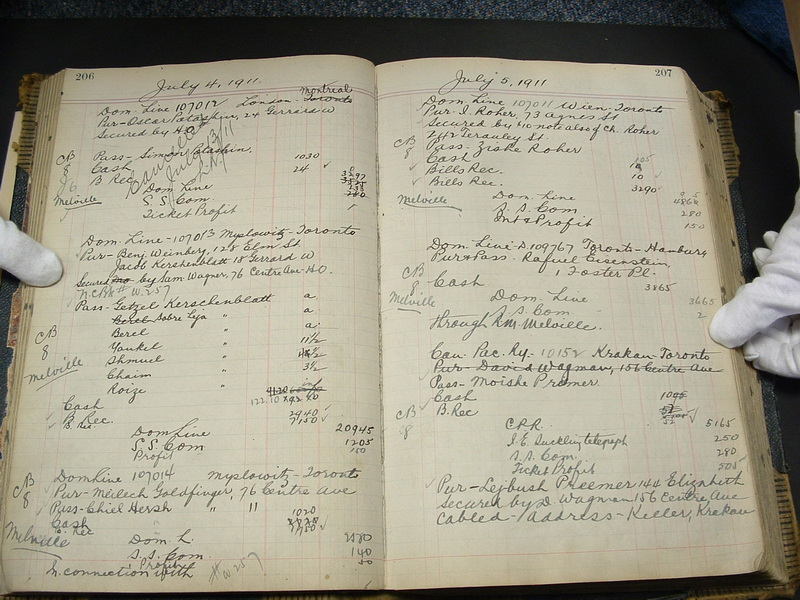 206
July 4, 1911.
Dom. Line 107012 London - Toronto Montreal
Pur - Oscar 24 Gerrard W
Secured by H.O.
Pass - Simon
CB
8
Cash 1030
B Rec. 24
Dom Line
Melville
S.S. Com
Ticket Profit
Dom. Line - 107013 Myslowitz - Toronto
Pur - Benj. Weinberg, 128 Elm St.
Jacob Kershenblatt 18 Gerrard W
Secured by Sam. Wagner, 76 Centre Ave. H.O.
# W. 257
Pass - Getzel Kerschenblatt a.
" a.
Berel " a.
CB
8
Yankel " 11 1/2
Melville
Shmuel "
Chaim " 3 1/2
Roize "
Cash
B. Rec. 2940
B. Rec. 7150
Dom Line 20945
S.S. Com 1205
Profit 150
Dom Line 107014 Myslowitz - Toronto
CB
8
Pur - Meilech Goldfinger, 76 Centre Ave
Pass - Chiel Hersh " 11
Cash 1020
Rec
Melville
Dom. L.
S.S. Com. 140
Profit 50
In connection with # W. 257
207
July 5, 1911
Dom Line 107011 Wien - Toronto
Pur. I. Roher, 73 Agnes St
Secured by note also of Ch. Roher
Terauley St.
CB
8
Pass - Zishe Roher
Cash
Bills Rec. 10
Bills Rec. 3290
Melville
Dom. Line
S.S. Com 280
Int & Profit 150
Dom. Line - 109767 Toronto - Hamburg
Pur & Pass. Rafuel Eisenstein,
1 Foster Pl.
CB
8
Cash 3865
Melville
Dom. Line 3665
S.S. Com. 2
Through R.M. Melville.
Can. Pac. Ry - 10152 Krakau - Toronto
Pur - David Wagman, 156 Centre Ave
Pass - Moishe Premer.
Cash
CB
8
B. Rec
C.P.R. 5165
telegraph 250
S.S. Com. 280
Ticket Profit 505
Pur - Lejbush Preemer 144 Elizabeth
Secured by D. Wagman 156 Centre Ave
Cabled - Address - Keller, Krakau